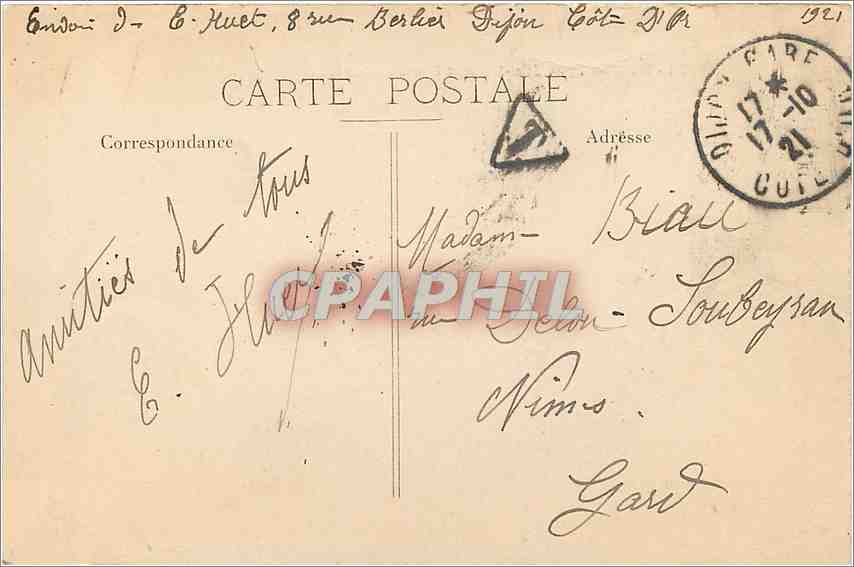 Envoi de E. Huet, 8 rue Berlier Dijon Côte D'Or 1921
CARTE POSTALE
Correspondance
Adresse
T
DIJON GARE
17 -10
17
21
COTE D'OR
Amitiés de tous
E. Huet
Madame Biau
rue Delon-Soubeyran
Nîmes.
Gard
CPAPHIL